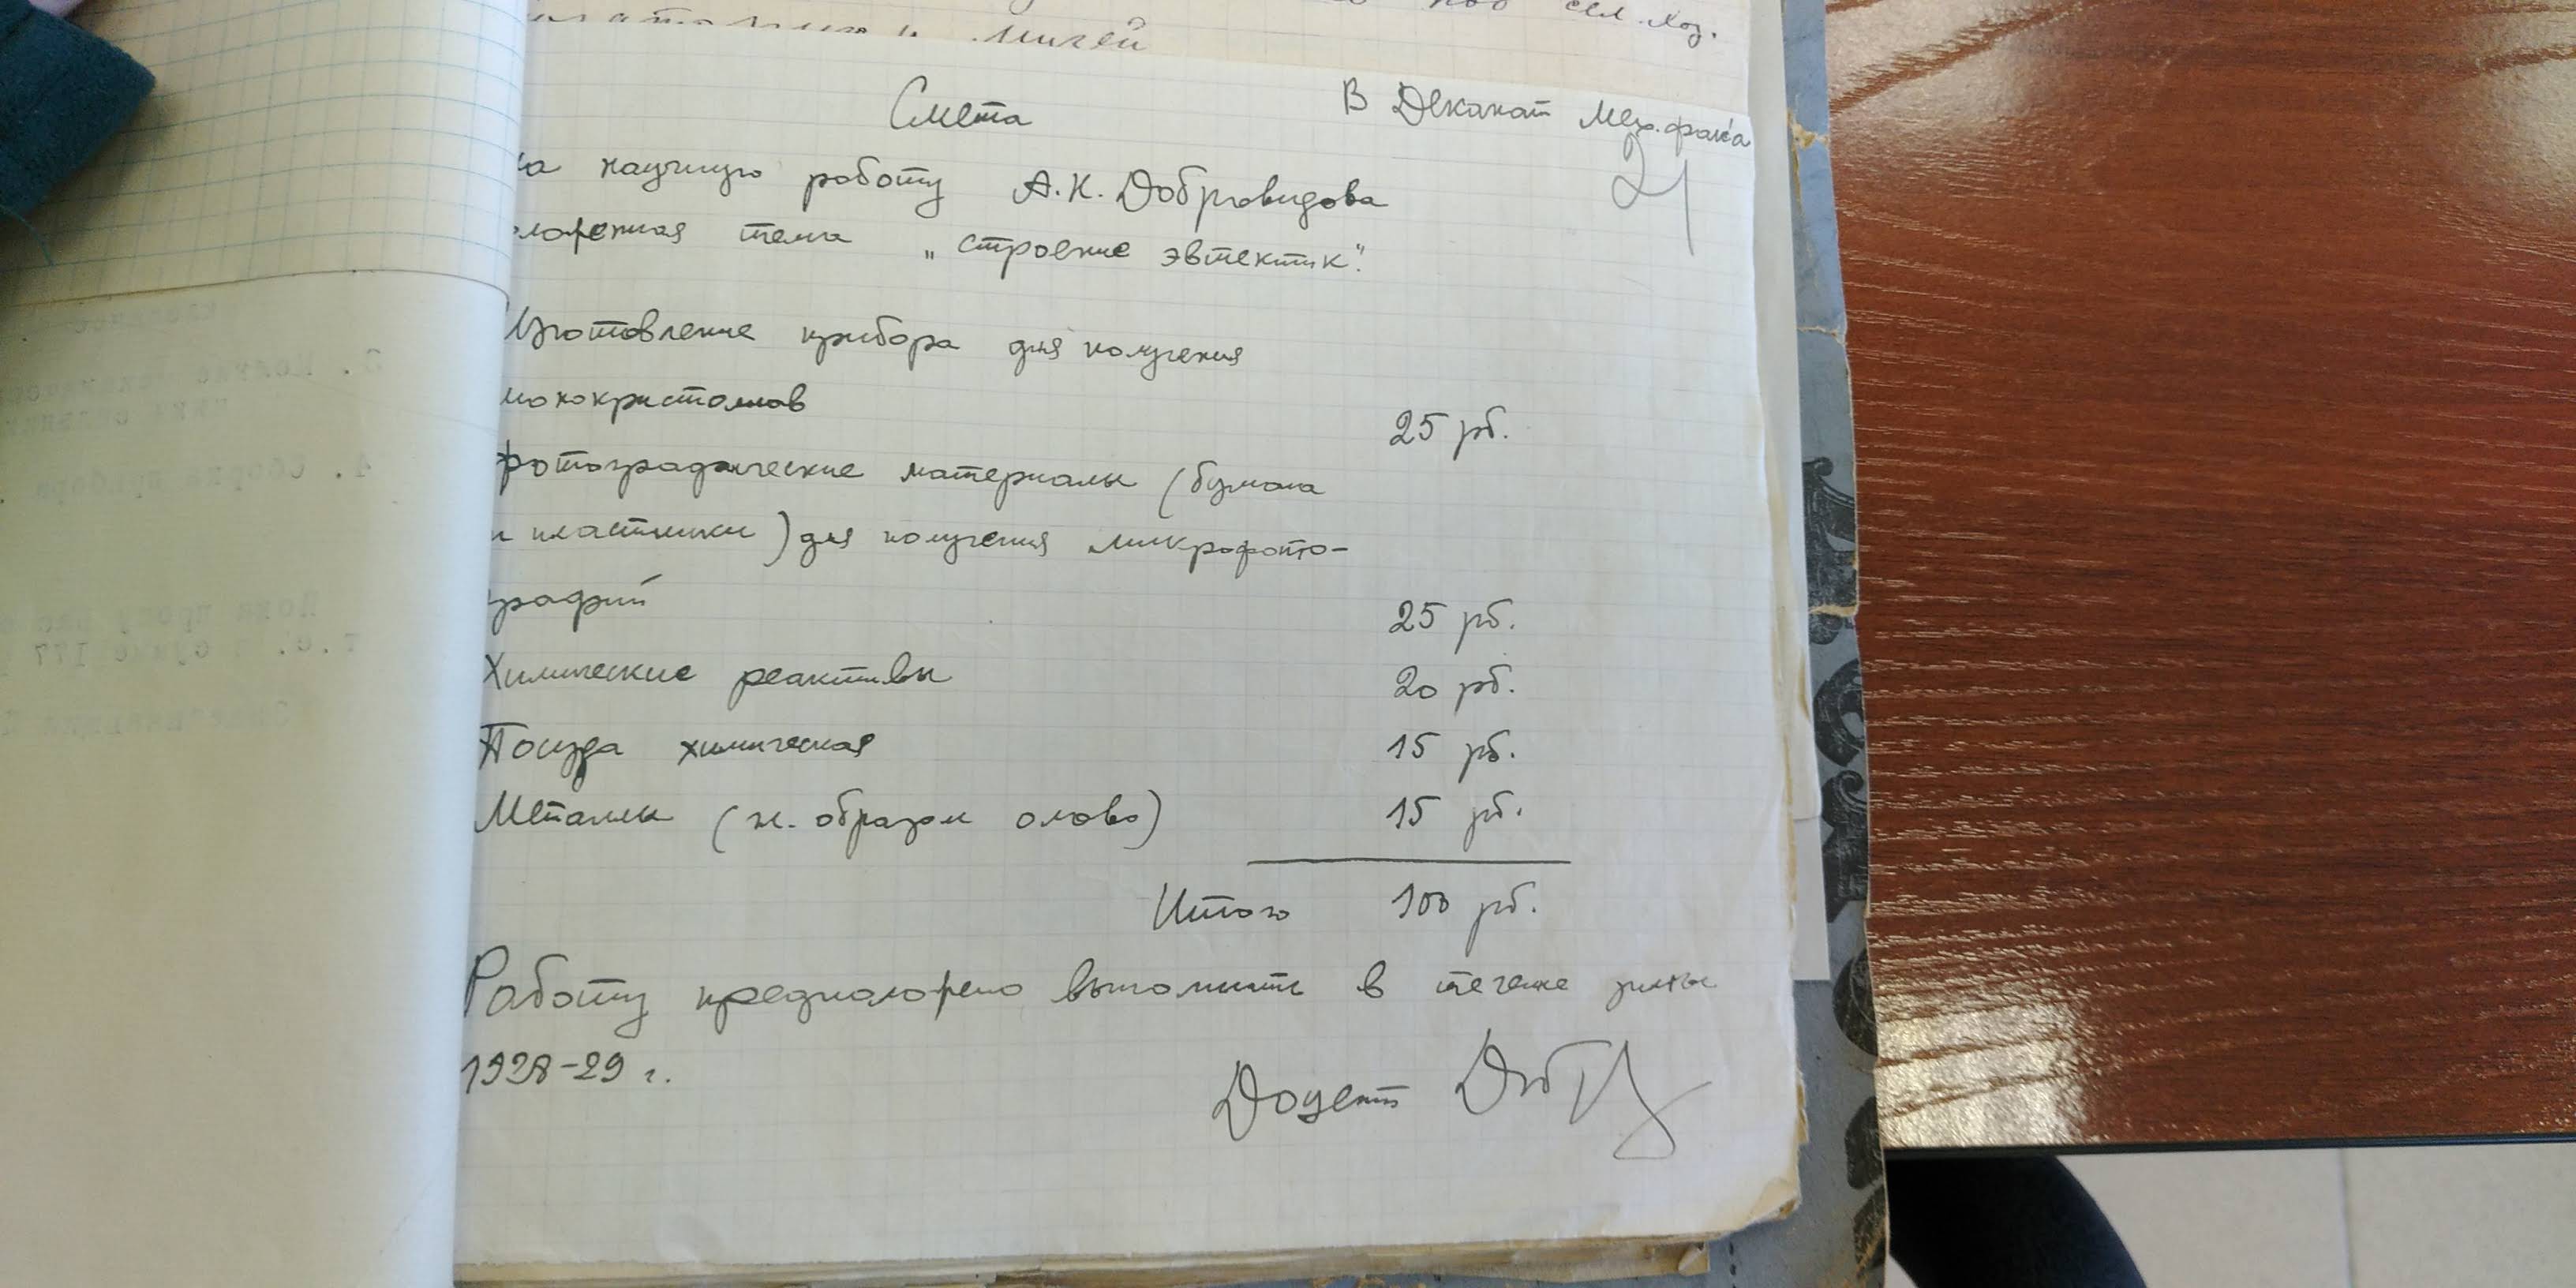 сел. хоз.
линей
Смета
В Деканат Мех. фак'а
21
на научную работу А.Н. Добровидова
ложенная тема „строение эвтектик".
Изготовление прибора для получения
монокристаллов 25 рб.
фотографические материалы (бумага
и пластинки) для получения микрофото-
графий 25 рб.
Химические реактивы 20 рб.
Посуда химическая 15 рб.
Металлы (гл. образом олово) 15 рб.
Итого 100 рб.
Работу предположено выполнить в течение зимы
1928-29 г.
Доцент
3.
4. Сборка прибора